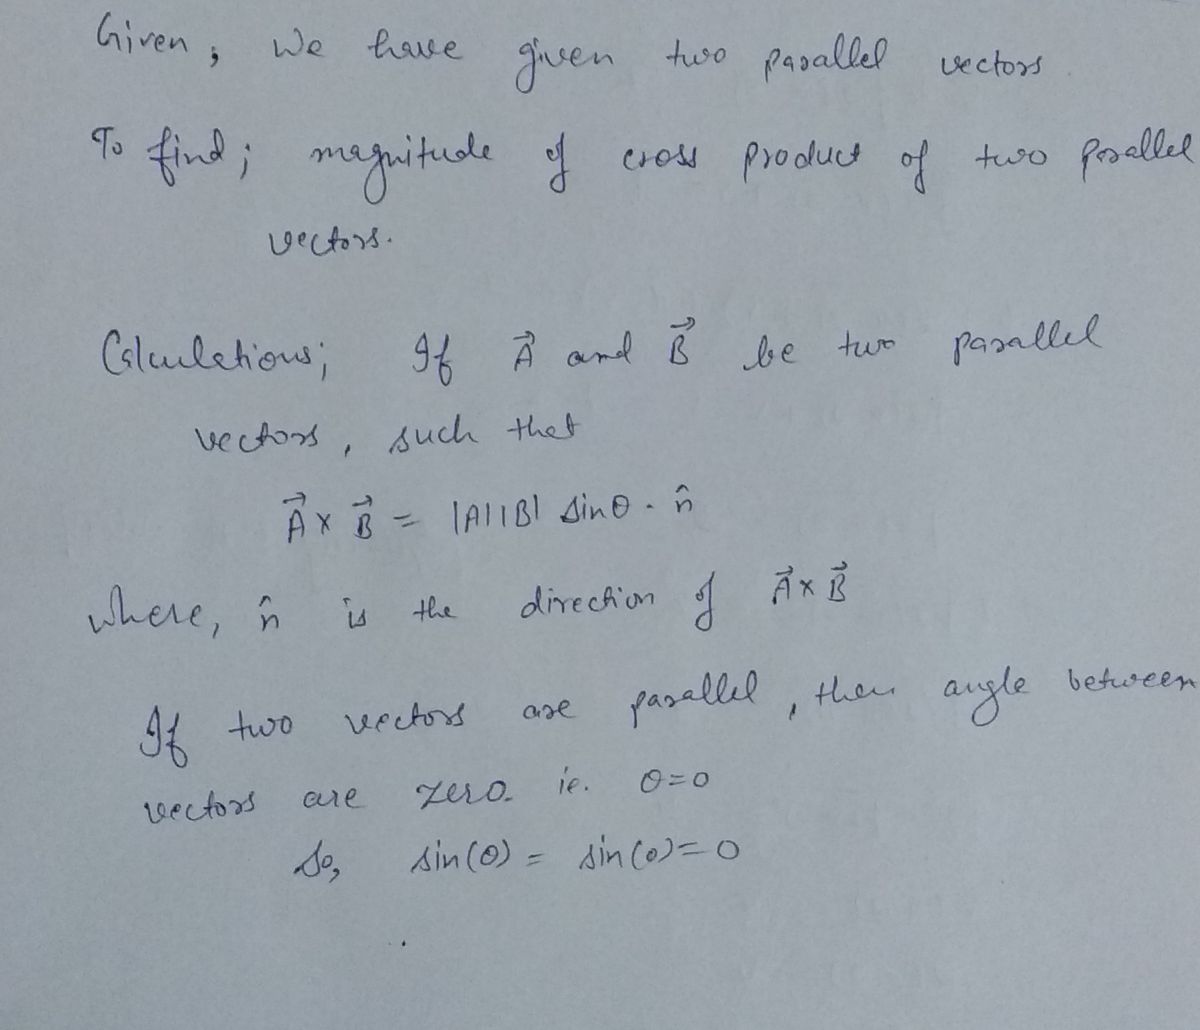 Given, We have given two parallel vectors
To find; magnitude of cross product of two parallel
vectors.
Calculations; If A⃗ and B⃗ be two parallel
vectors, such that
A⃗ × B⃗ = |A||B| sinθ · n̂
where, n̂ is the direction of A⃗ × B⃗
If two vectors are parallel, then angle between
vectors are zero. ie. θ=0
So, sin(θ) = sin(0)=0